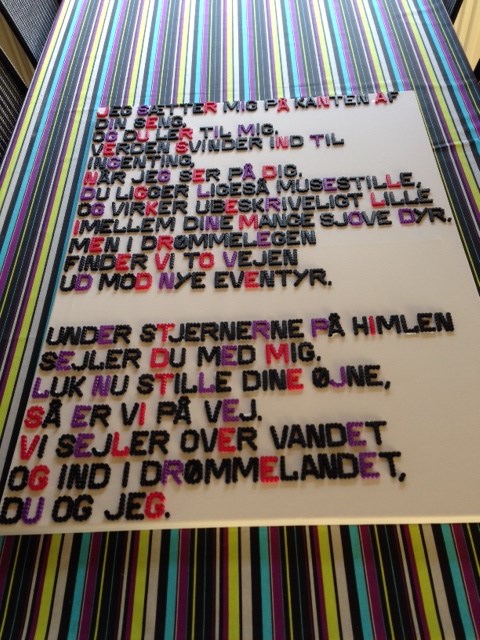 JEG SÆTTER MIG PÅ KANTEN AF
DIN SENG,
OG DU LER TIL MIG.
VERDEN SVINDER IND TIL
INGENTING,
NÅR JEG SER PÅ DIG.
DU LIGGER LIGESÅ MUSESTILLE,
OG VIRKER UBESKRIVELIGT LILLE
IMELLEM DINE MANGE SJOVE DYR.
MEN I DRØMMELEGEN
FINDER VI TO VEJEN
UD MOD NYE EVENTYR.
UNDER STJERNERNE PÅ HIMLEN
SEJLER DU MED MIG.
LUK NU STILLE DINE ØJNE,
SÅ ER VI PÅ VEJ.
VI SEJLER OVER VANDET
OG IND I DRØMMELANDET,
DU OG JEG.